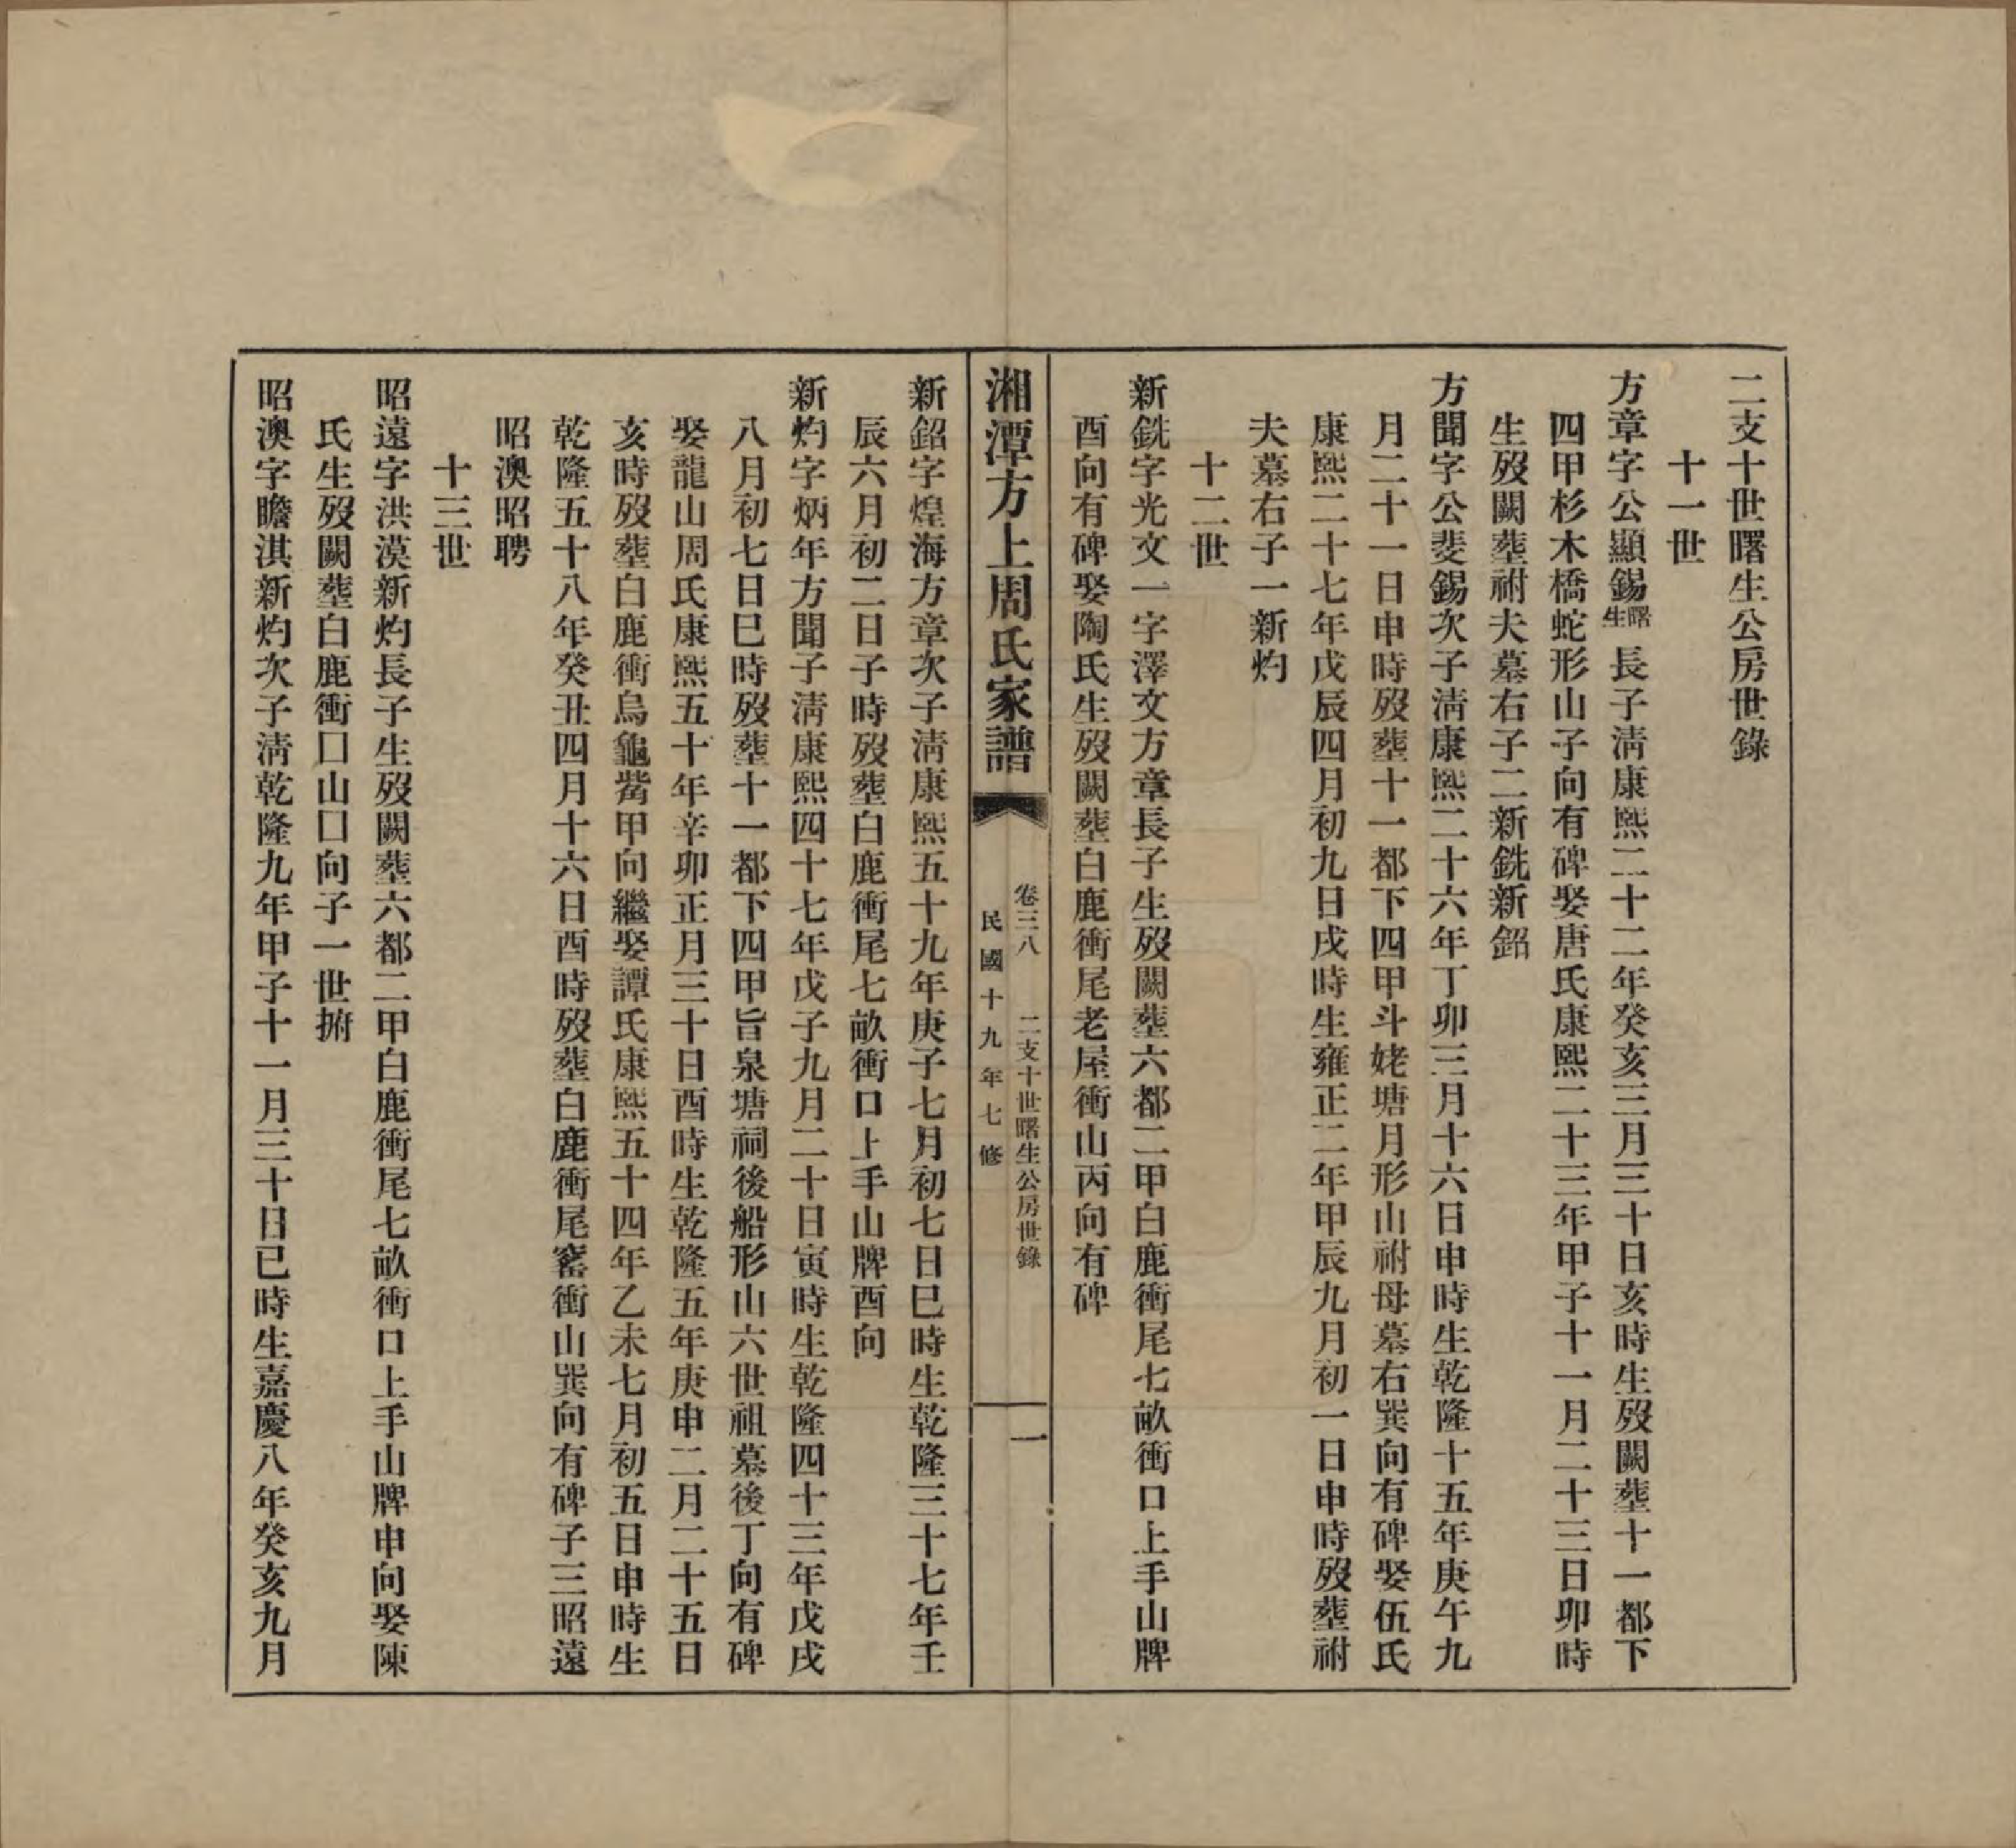 二支十世曙生公房世錄
十一世
方章字公顯錫曙生長子淸康熙二十二年癸亥三月三十日亥時生歿闕塟十一都下
四甲杉木橋蛇形山子向有碑娶唐氏康熙二十三年甲子十一月二十三日卯時
生歿闕塟祔夫墓右子二新銑新𨥈
方聞字公斐錫次子淸康熙二十六年丁卯三月十六日申時生乾隆十五年庚午九
月二十一日申時歿塟十一都下四甲斗姥塘月形山祔母墓右巽向有碑娶伍氏
康熙二十七年戊辰四月初九日戌時生雍正二年甲辰九月初一日申時歿塟祔
夫墓右子一新灼
十二世
新銑字光文一字澤文方章長子生歿闕塟六都二甲白鹿衝尾七畝衝口上手山牌
酉向有碑娶陶氏生歿闕塟白鹿衝尾老屋衝山丙向有碑
湘潭方上周氏家譜
卷三八 二支十世曙生公房世錄
民國十九年七修
一
新𨥈字煌海方章次子淸康熙五十九年庚子七月初七日巳時生乾隆三十七年壬
辰六月初二日子時歿塟白鹿衝尾七畝衝口上手山牌酉向
新灼字炳年方聞子淸康熙四十七年戊子九月二十日寅時生乾隆四十三年戊戌
八月初七日巳時歿塟十一都下四甲旨泉塘祠後船形山六世祖墓後丁向有碑
娶龍山周氏康熙五十年辛卯正月三十日酉時生乾隆五年庚申二月二十五日
亥時歿塟白鹿衝烏龜觜甲向繼娶譚氏康熙五十四年乙未七月初五日申時生
乾隆五十八年癸丑四月十六日酉時歿塟白鹿衝尾窰衝山巽向有碑子三昭遠
昭澳昭聘
十三世
昭遠字洪漠新灼長子生歿闕塟六都二甲白鹿衝尾七畝衝口上手山牌申向娶陳
氏生歿闕塟白鹿衝囗山囗向子一世捬
昭澳字瞻淇新灼次子淸乾隆九年甲子十一月三十日巳時生嘉慶八年癸亥九月